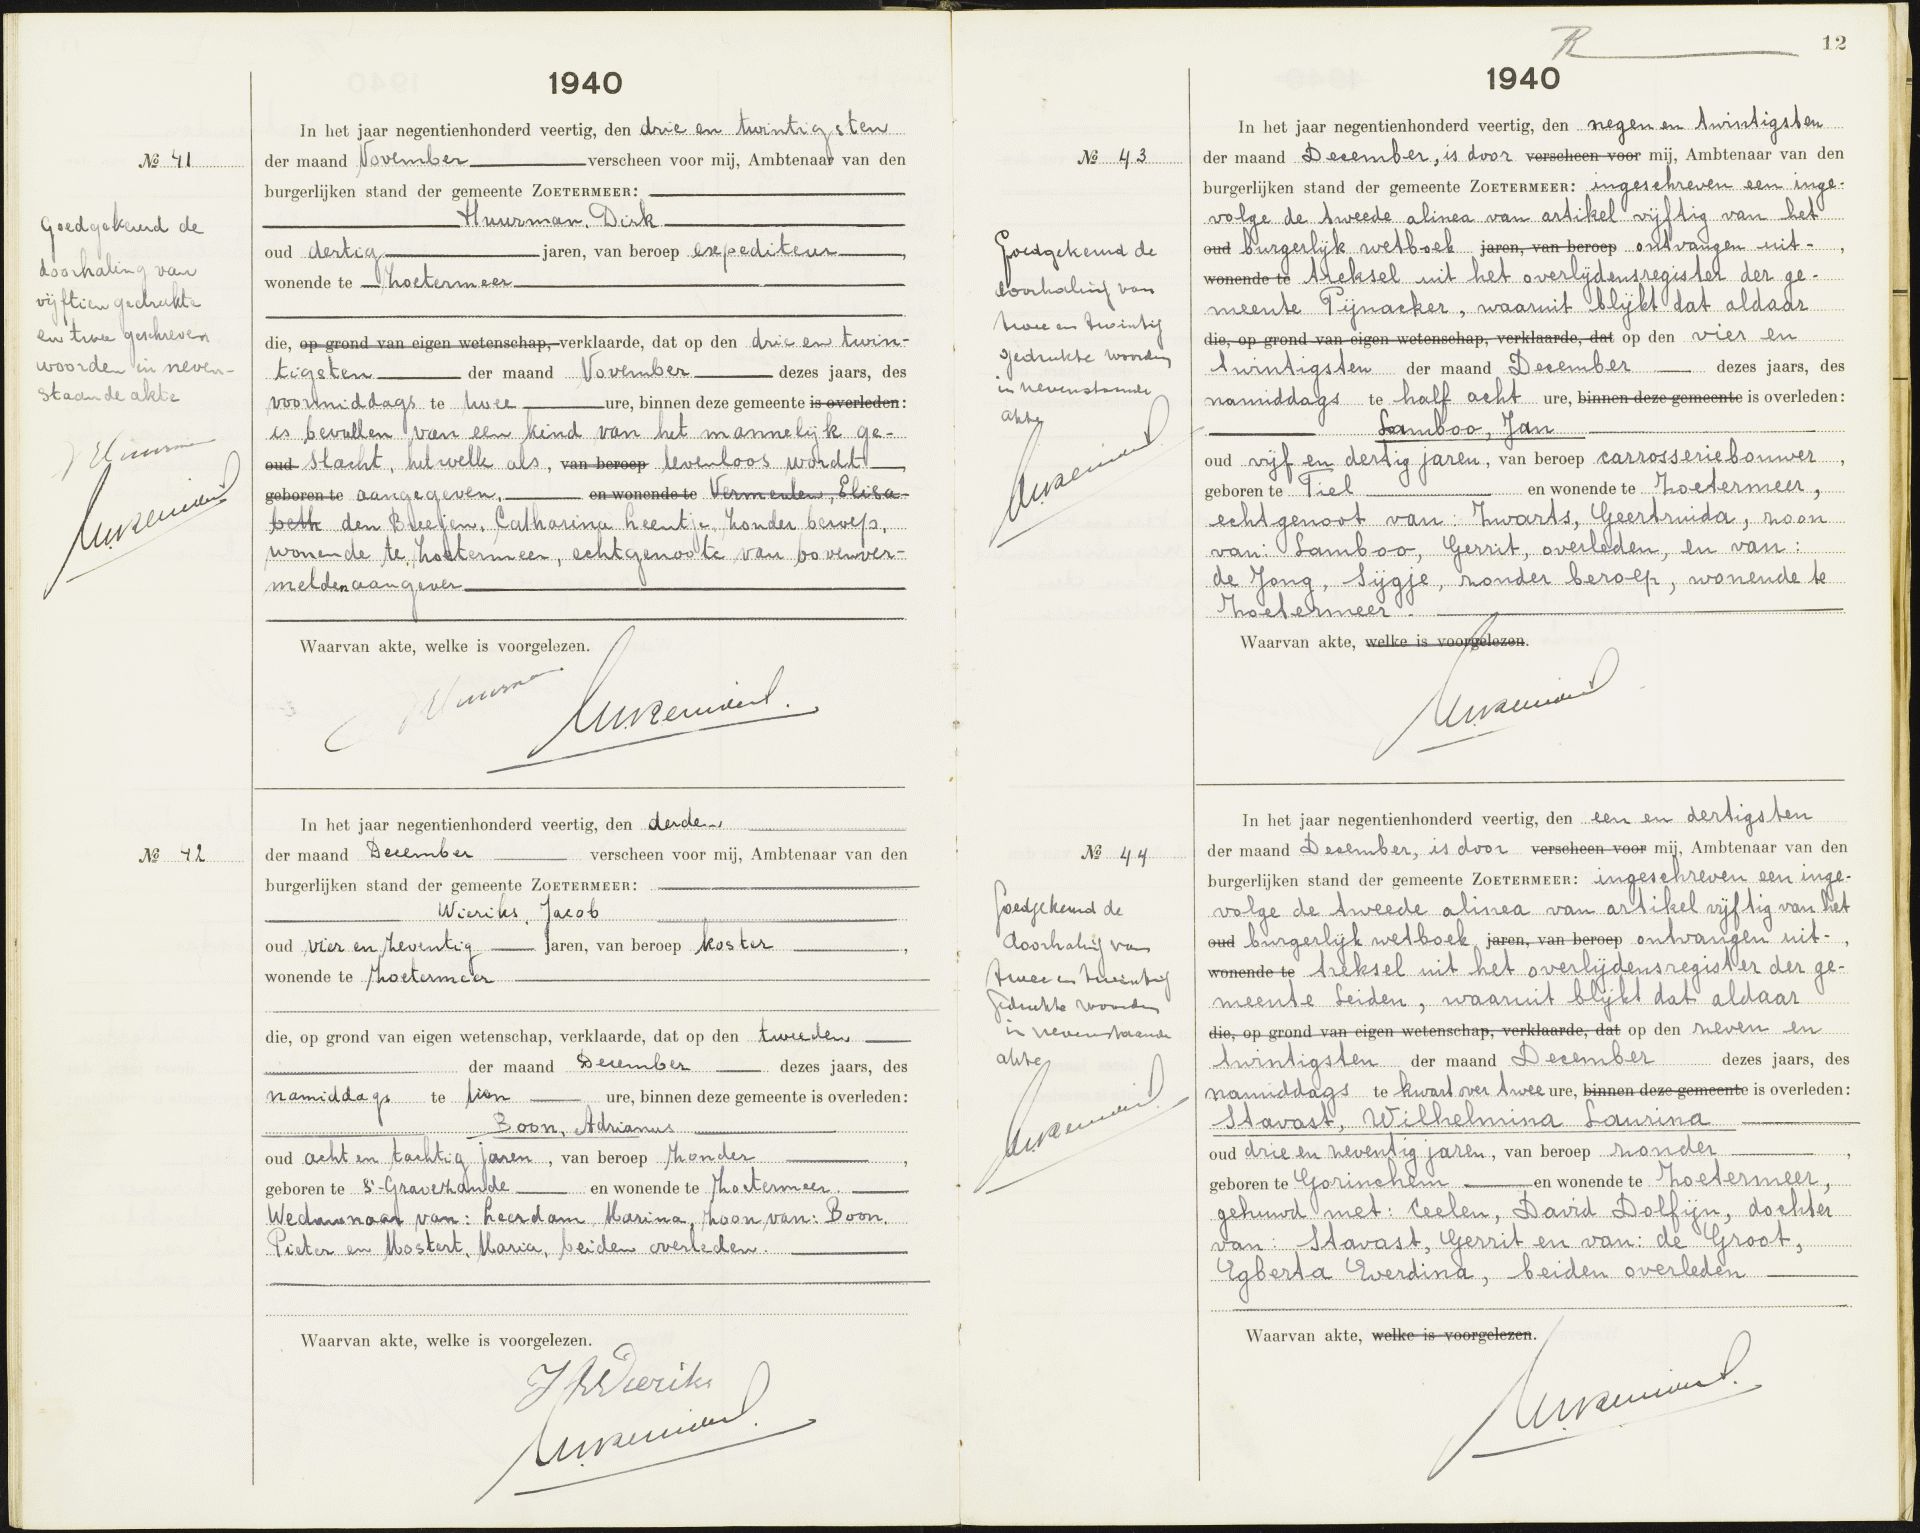 1940
In het jaar negentienhonderd veertig, den drie en twintigsten
No 41
der maand November verscheen voor mij, Ambtenaar van den
burgerlijken stand der gemeente ZOETERMEER:
Huurman, Dirk
oud dertig jaren, van beroep expediteur,
wonende te Zoetermeer
die, op grond van eigen wetenschap, verklaarde, dat op den drie en twin-
tigsten der maand November dezes jaars, des
voormiddags te twee ure, binnen deze gemeente is overleden:
is bevallen van een kind van het mannelijk ge-
oud slacht, hetwelk als, van beroep levenloos wordt
geboren te aangegeven, en wonende te Vermeulen, Elisa-
beth den Breejen, Catharina Leentje, zonder beroep,
wonende te Zoetermeer, echtgenoote van bovenver-
melden aangever
Waarvan akte, welke is voorgelezen.
Goedgekeurd de
doorhaling van
vijftien gedrukte
en twee geschreven
woorden in neven-
staande akte
In het jaar negentienhonderd veertig, den derden
No 42
der maand December verscheen voor mij, Ambtenaar van den
burgerlijken stand der gemeente ZOETERMEER:
Wieriks, Jacob
oud vier en zeventig jaren, van beroep koster,
wonende te Zoetermeer
die, op grond van eigen wetenschap, verklaarde, dat op den tweeden
der maand December dezes jaars, des
namiddags te tien ure, binnen deze gemeente is overleden:
Boon, Adrianus
oud acht en tachtig jaren, van beroep zonder,
geboren te 's-Gravezande en wonende te Zoetermeer.
Weduwnaar van: Leerdam Marina, zoon van: Boon,
Pieter en Mostert, Maria, beiden overleden.
Waarvan akte, welke is voorgelezen.
J Wieriks
12
1940
In het jaar negentienhonderd veertig, den negen en twintigsten
No 43
der maand December, is door verscheen voor mij, Ambtenaar van den
burgerlijken stand der gemeente ZOETERMEER: ingeschreven een inge-
volge de tweede alinea van artikel vijftig van het
oud burgerlijk wetboek jaren, van beroep ontvangen uit-,
wonende te treksel uit het overlijdensregister der ge-
meente Pijnacker, waaruit blijkt dat aldaar
die, op grond van eigen wetenschap, verklaarde, dat op den vier en
twintigsten der maand December dezes jaars, des
namiddags te half acht ure, binnen deze gemeente is overleden:
Lamboo, Jan
oud vijf en dertig jaren, van beroep carrosseriebouwer,
geboren te Tiel en wonende te Zoetermeer,
echtgenoot van: Zwarts, Geertruida, zoon
van: Lamboo, Gerrit, overleden, en van:
de Jong, Sijgje, zonder beroep, wonende te
Zoetermeer.
Waarvan akte, welke is voorgelezen.
Goedgekeurd de
doorhaling van
twee en twintig
gedrukte woorden
in nevenstaande
akte
In het jaar negentienhonderd veertig, den een en dertigsten
No 44
der maand December, is door verscheen voor mij, Ambtenaar van den
burgerlijken stand der gemeente ZOETERMEER: ingeschreven een inge-
volge de tweede alinea van artikel vijftig van het
oud burgerlijk wetboek jaren, van beroep ontvangen uit-,
wonende te treksel uit het overlijdensregister der ge-
meente Leiden, waaruit blijkt dat aldaar
die, op grond van eigen wetenschap, verklaarde, dat op den zeven en
twintigsten der maand December dezes jaars, des
namiddags te kwart over twee ure, binnen deze gemeente is overleden:
Stavast, Wilhelmina Laurina
oud drie en zeventig jaren, van beroep zonder,
geboren te Gorinchem en wonende te Zoetermeer,
gehuwd met: Ceelen, David Dolfijn, dochter
van: Stavast, Gerrit en van: de Groot,
Egberta Everdina, beiden overleden
Waarvan akte, welke is voorgelezen.
Goedgekeurd de
doorhaling van
twee en twintig
gedrukte woorden
in nevenstaande
akte